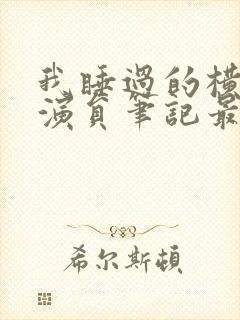 我睡過的橫
演員筆記最
希尔斯頓